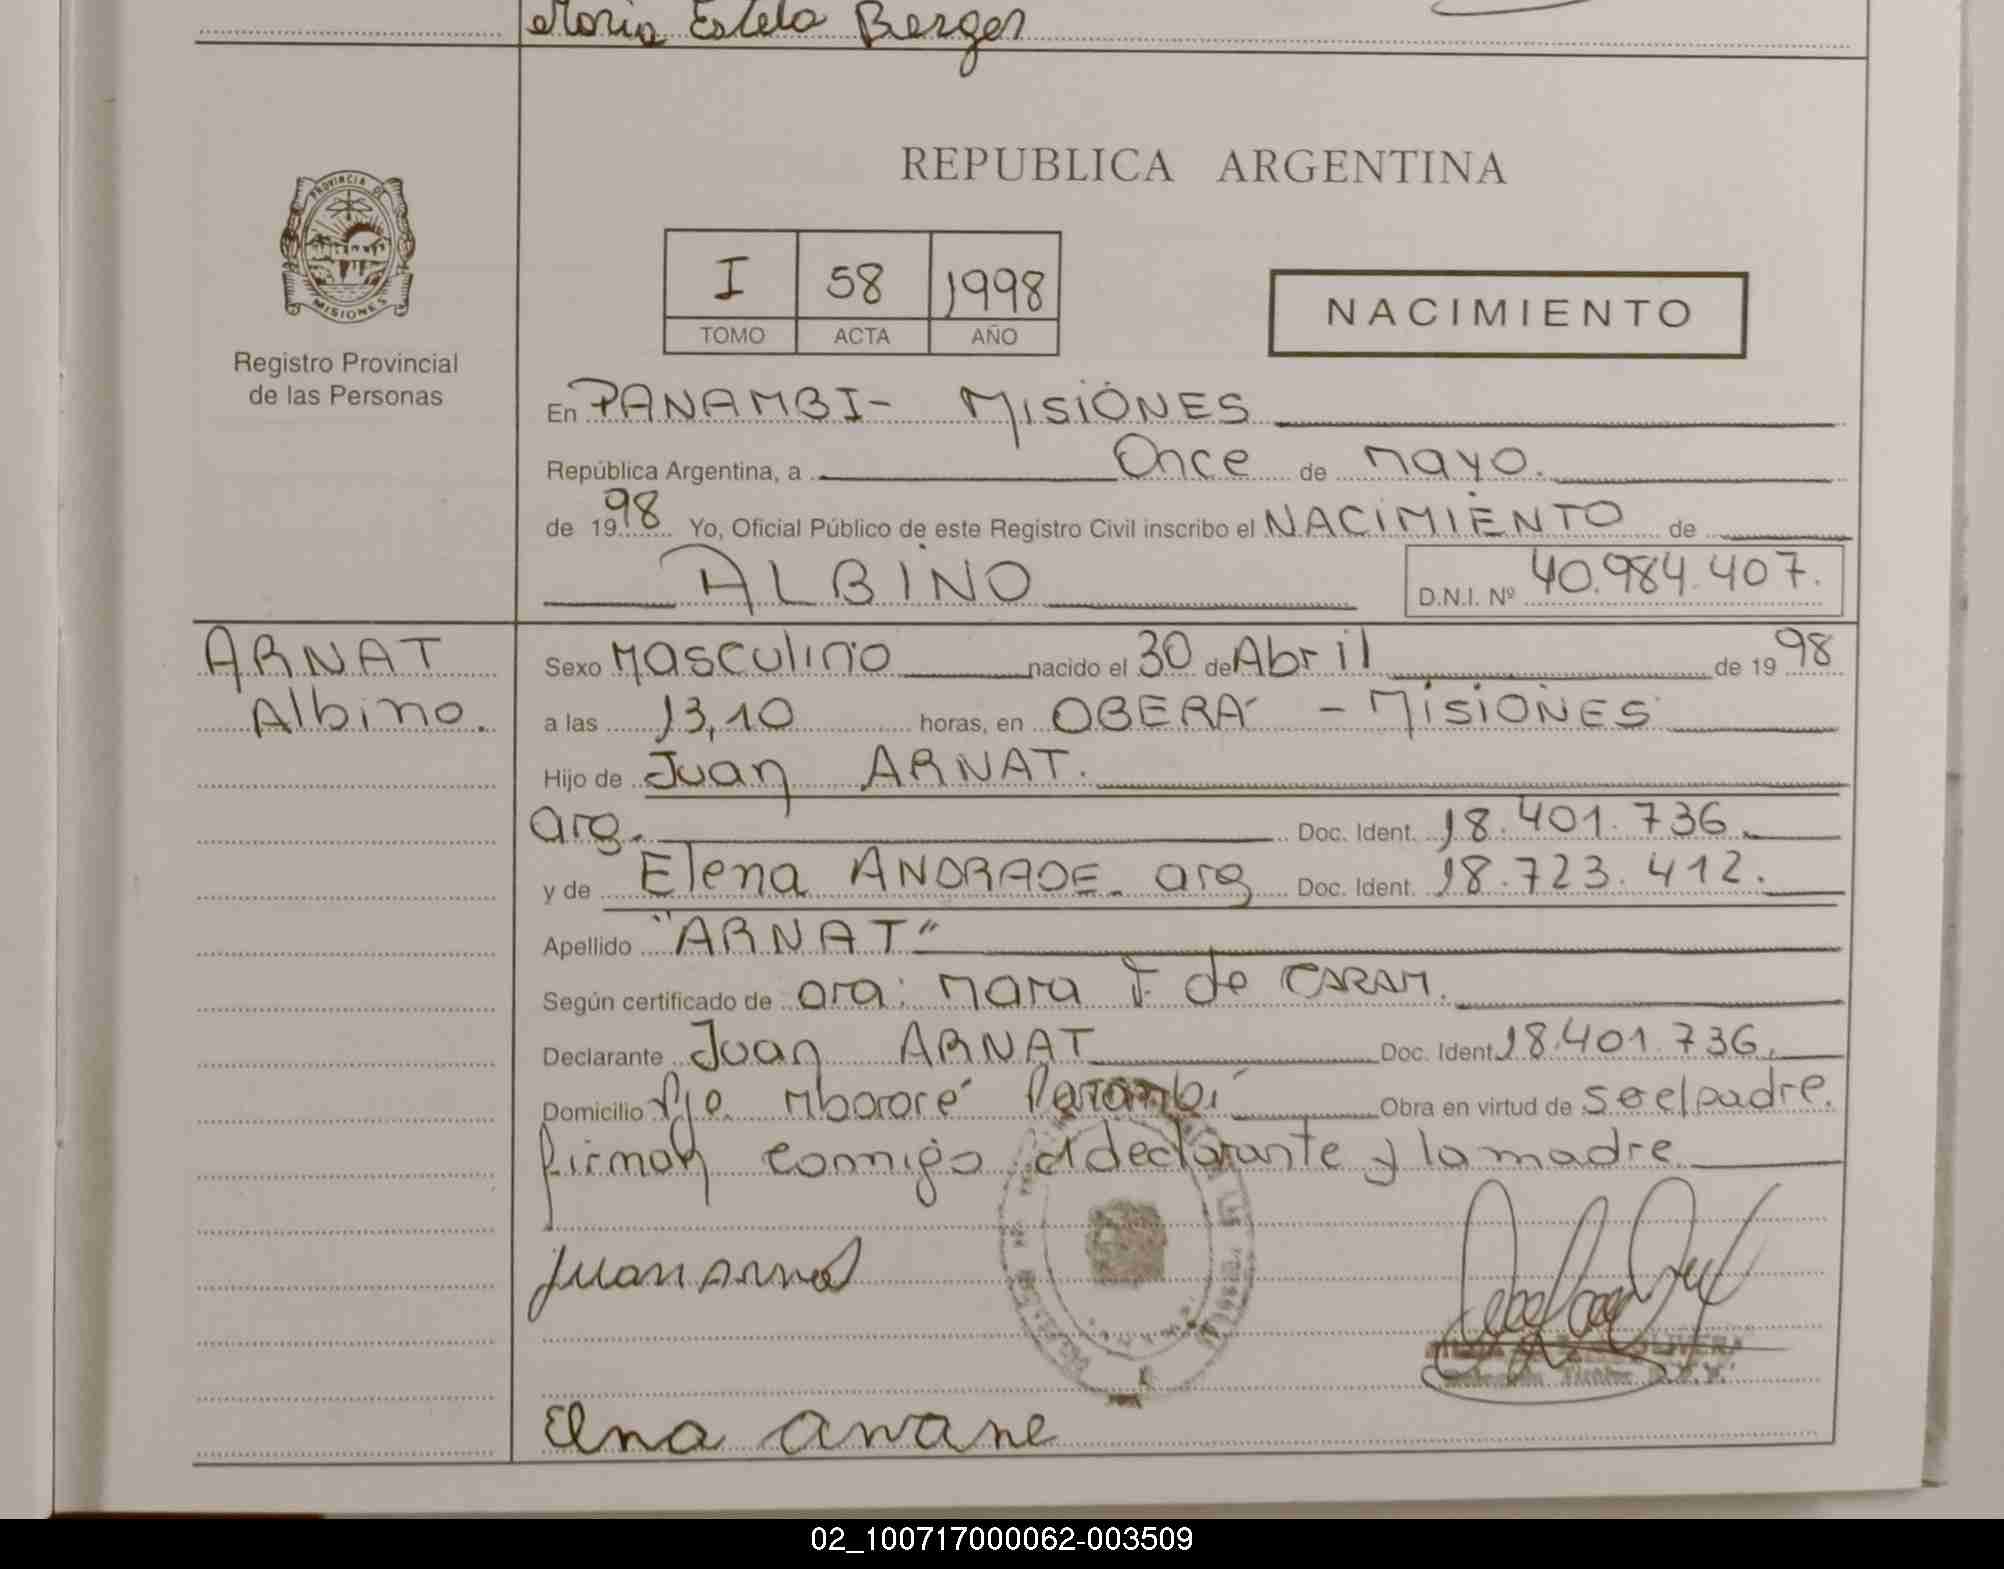 Maria Estela Berger
REPUBLICA ARGENTINA
PROVINCIA DE
MISIONES
Registro Provincial
de las Personas
I 58 1998
TOMO ACTA AÑO
NACIMIENTO
En PANAMBI- MISIONES
República Argentina, a Once de mayo.
de 1998 Yo, Oficial Público de este Registro Civil inscribo el NACIMIENTO de
ALBINO D.N.I. Nº 40.984.407.
ARNAT
Albino.
Sexo Masculino nacido el 30 de Abril de 1998
a las 13,10 horas, en OBERA´ - MISIONES
Hijo de Juan ARNAT.
arg. Doc. Ident. 18.401.736
y de Elena ANDRADE. arg Doc. Ident. 18.723.412.
Apellido "ARNAT"
Según certificado de Dra: Mara F. de CARAM.
Declarante Juan ARNAT Doc. Ident. 18.401.736.
Domicilio Pje. Mbororé Panambí Obra en virtud de se el padre.
firman conmigo el declarante y la madre
Juan Arnat
Elna
02_100717000062-003509